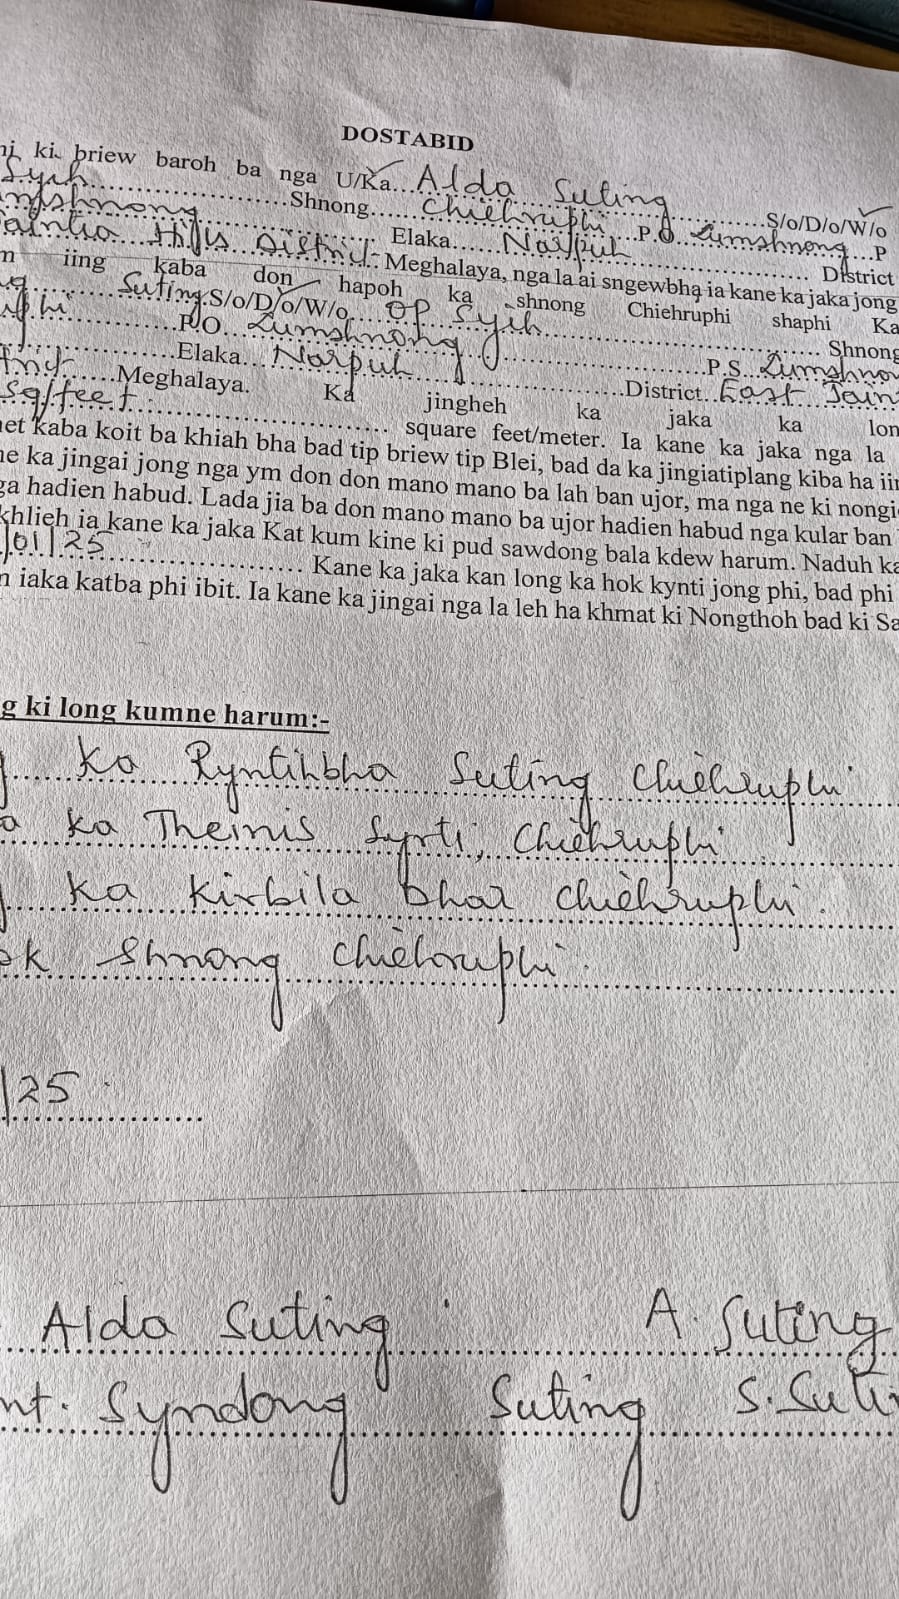 DOSTABID
ki briew baroh ba nga U/Ka... Alda Suting ........ S/o/D/o/W/o
Syih ........ Shnong.... Chiehruphi ... P.O. Lumshnong ...P
........ Elaka..... Narpuh ........ District
Jaintia Hills District:- Meghalaya, nga la ai sngewbha ia kane ka jaka jong
iing kaba don hapoh ka shnong Chiehruphi shaphi Ka
Suting.S/o/D/o/W/o.... OP Syih ........ Shnong
........P.O... Lumshnong ........P.S.. Lumshno
........Elaka... Narpuh ........District.. East Jain
......Meghalaya. Ka jingheh ka jaka ka lon
sq/feet ........ square feet/meter. Ia kane ka jaka nga la
kaba koit ba khiah bha bad tip briew tip Blei, bad da ka jingiatiplang kiba ha iin
ka jingai jong nga ym don don mano mano ba lah ban ujor, ma nga ne ki nongi
hadien habud. Lada jia ba don mano mano ba ujor hadien habud nga kular ban
khlieh ia kane ka jaka Kat kum kine ki pud sawdong bala kdew harum. Naduh ka
/01/25 ........ Kane ka jaka kan long ka hok kynti jong phi, bad phi
iaka katba phi ibit. Ia kane ka jingai nga la leh ha khmat ki Nongthoh bad ki Sa
g ki long kumne harum:-
Ka Ryntihbha Suting Chiehruphi
ka Theinis Syrti, Chiehruphi
Ka Kirbila bhar chiehruphi.
Shnong Chiehruphi.
/25
Alda Suting A. Suting
nt. Syndong Suting S. Suti